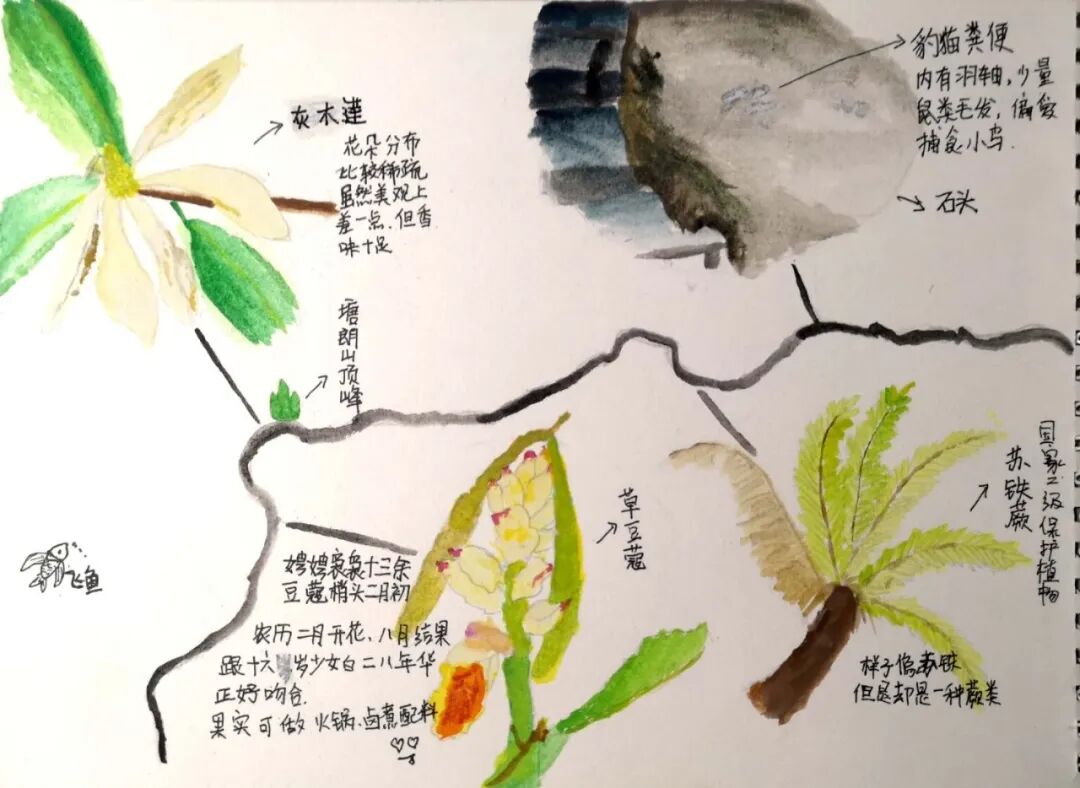 灰木莲
花朵分布
比较稀疏
虽然美观上
差一点,但香
味十足
豹猫粪便
内有羽轴,少量
鼠类毛发,偏爱
捕食小鸟.
石头
塘朗山顶峰
草豆蔻
娉娉袅袅十三余
豆蔻梢头二月初
农历二月开花、八月结果
跟十六岁少女白二八年华
正好吻合.
果实可做火锅、卤煮配料
苏铁蕨
国家二级保护植物
样子像苏铁
但是却是一种蕨类
飞鱼